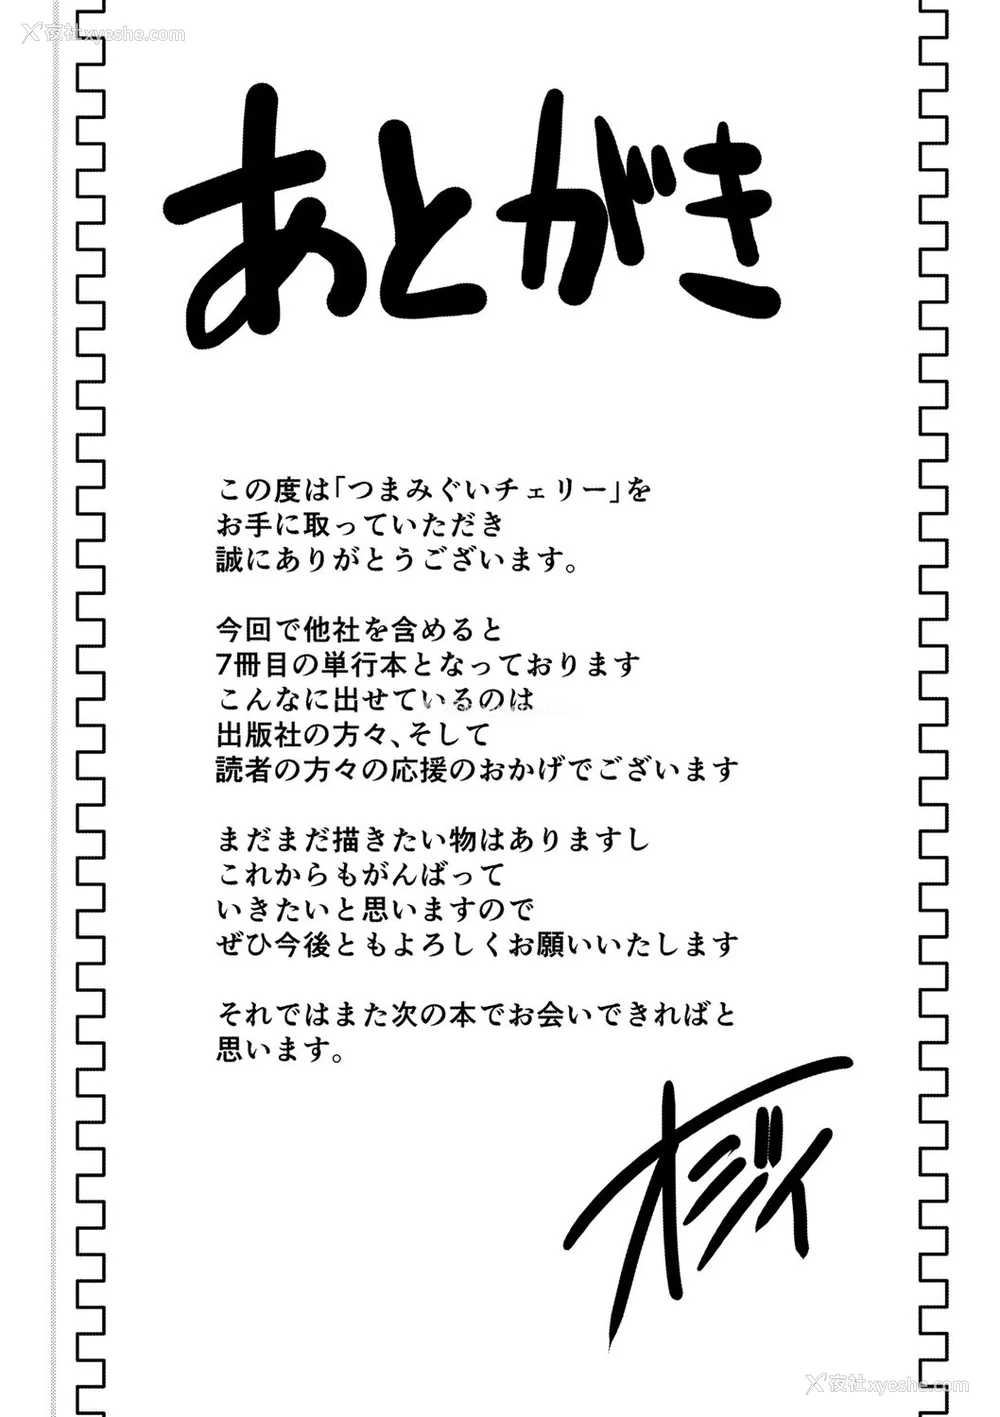 夜社xyeshe.com
あとがき
この度は「つまみぐいチェリー」を
お手に取っていただき
誠にありがとうございます。
今回で他社を含めると
7冊目の単行本となっております
こんなに出せているのは
出版社の方々、そして
読者の方々の応援のおかげでございます
まだまだ描きたい物はありますし
これからもがんばって
いきたいと思いますので
ぜひ今後ともよろしくお願いいたします
それではまた次の本でお会いできればと
思います。
オジイ
夜社xyeshe.com